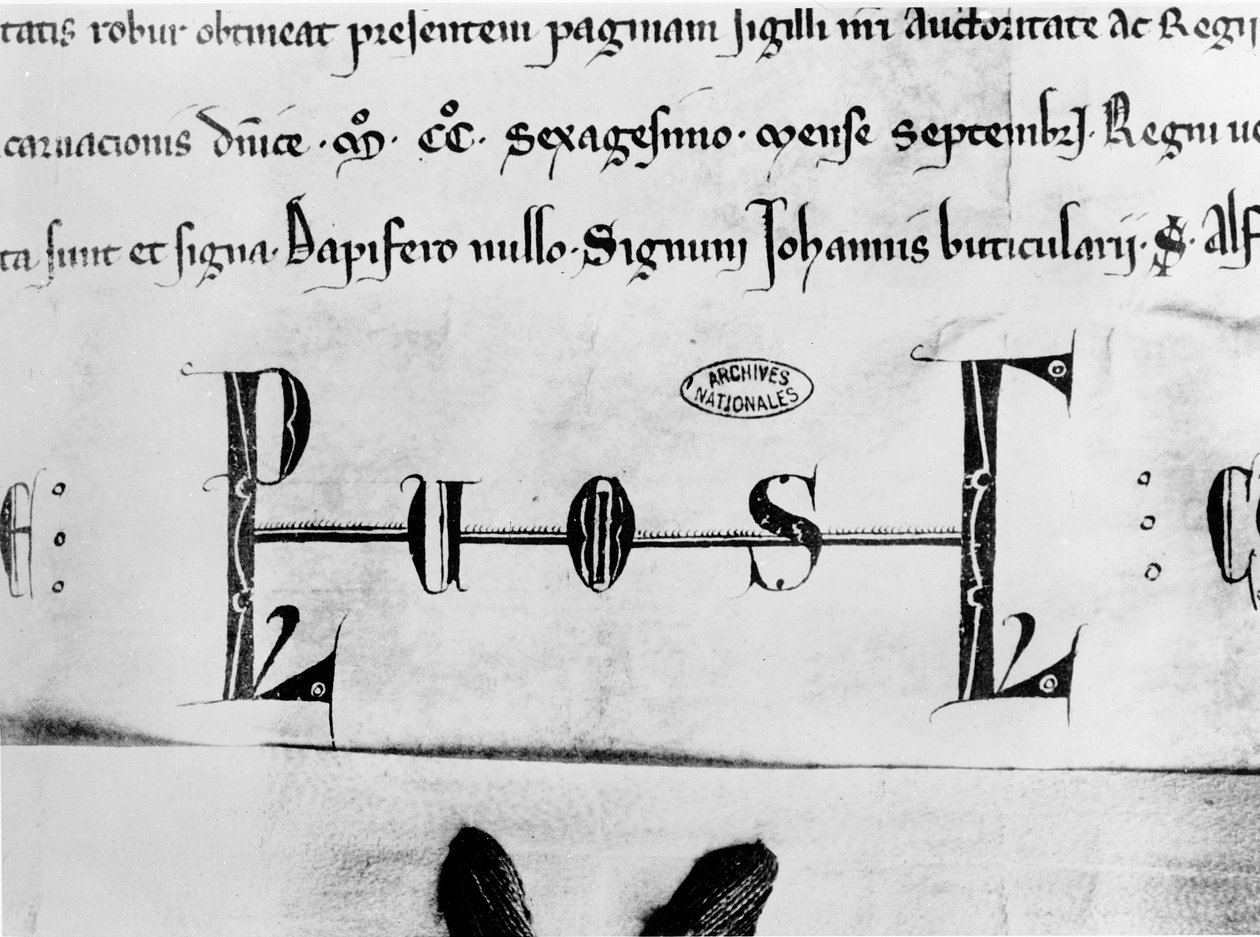 tatis robur obtineat presentem paginam sigilli nr̄i auctoritate ac Regij
carnacionis dn̄ice · Mͦ · CCͦ · Sexagesimo · mense Septembrj · Regni u
ta sunt et signa · Dapifero nullo · Signum Johannis buticularij · S̷ · Alf
ARCHIVES
NATIONALES